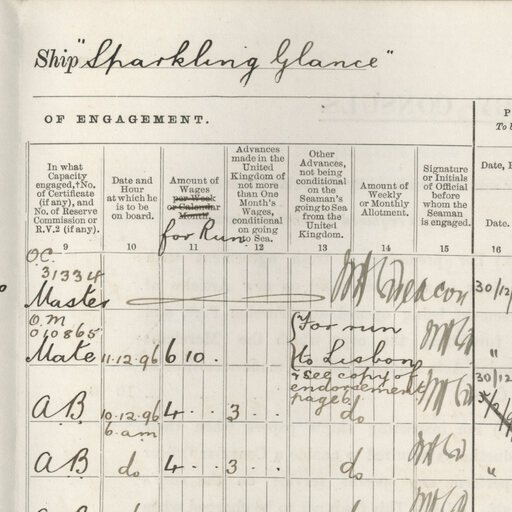 Ship "Sparkling Glance"
OF ENGAGEMENT.
P
To b
In what
Capacity
engaged,†No.
of Certificate
(if any), and
No. of Reserve
Commission or
R.V.2 (if any).
Date and
Hour
at which he
is to be
on board.
Amount of
Wages
per Week
or Calendar
Month.
for Run
Advances
made in the
United
Kingdom of
not more
than One
Month's
Wages,
conditional
on going
to Sea.
Other
Advances,
not being
conditional
on the
Seaman's
going to Sea
from the
United
Kingdom.
Amount of
Weekly
or Monthly
Allotment.
Signature
or Initials
of Official
before
whom the
Seaman
is engaged.
Date, 
Date.
9 10 11 12 13 14 15 16
O.C.
31334
Master Deacon 30/12/
O.M
010865
Mate 11.12.96 6 10. . {For run to Lisbon "
& see copy of
endorsement
page 6
30/12
A.B 10.12.96 4 . . 3 . . do
6. a.m
A.B do 4 . . 3 . . do "